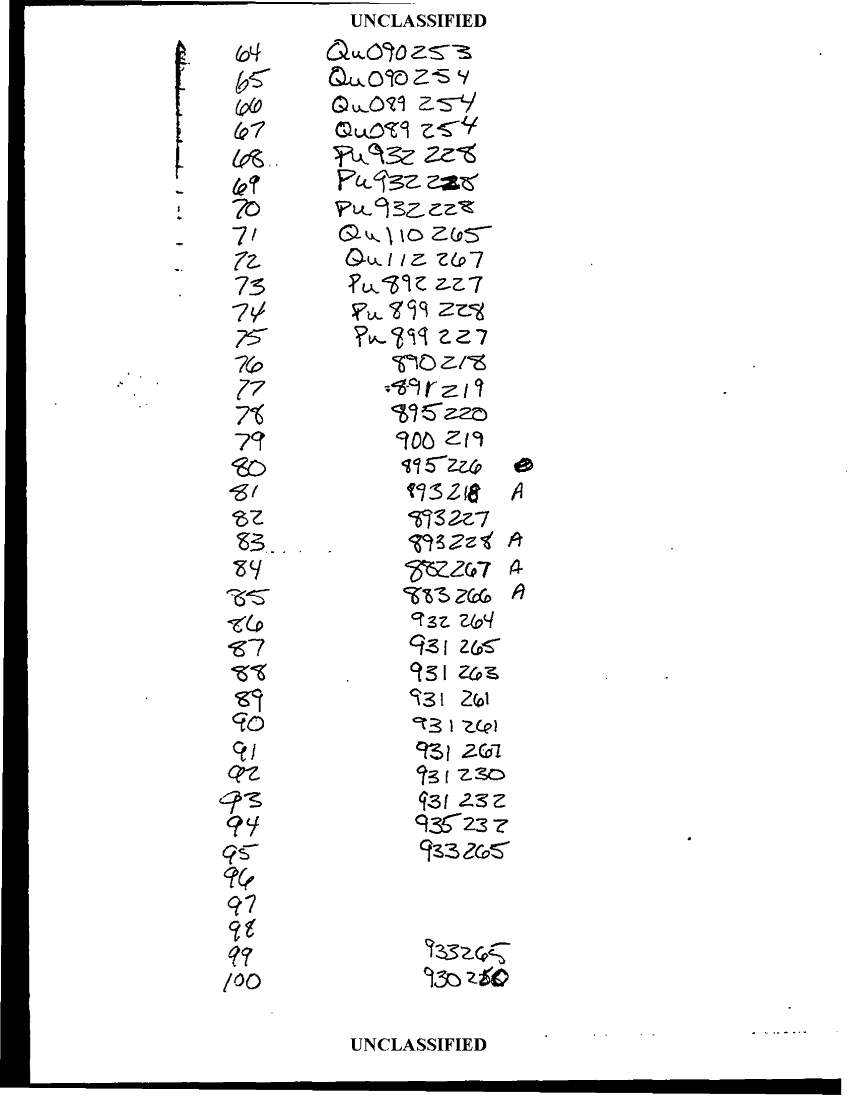 UNCLASSIFIED
64 Qu090253
65 Qu090254
66 Qu089 254
67 Qu089 254
68 Pu932 228
69 Pu932228
70 Pu932228
71 Qu110265
72 Qu112 267
73 Pu892 227
74 Pu 899 228
75 Pu 899 227
76 890218
77 891219
78 895220
79 900 219
80 895226
81 893218 A
82 893227
83 893228 A
84 882267 A
85 883266 A
86 932 264
87 931 265
88 931 263
89 931 261
90 931261
91 931
92 931230
93 931 232
94 935 232
95 933265
96
97
98
99 933265
100
UNCLASSIFIED